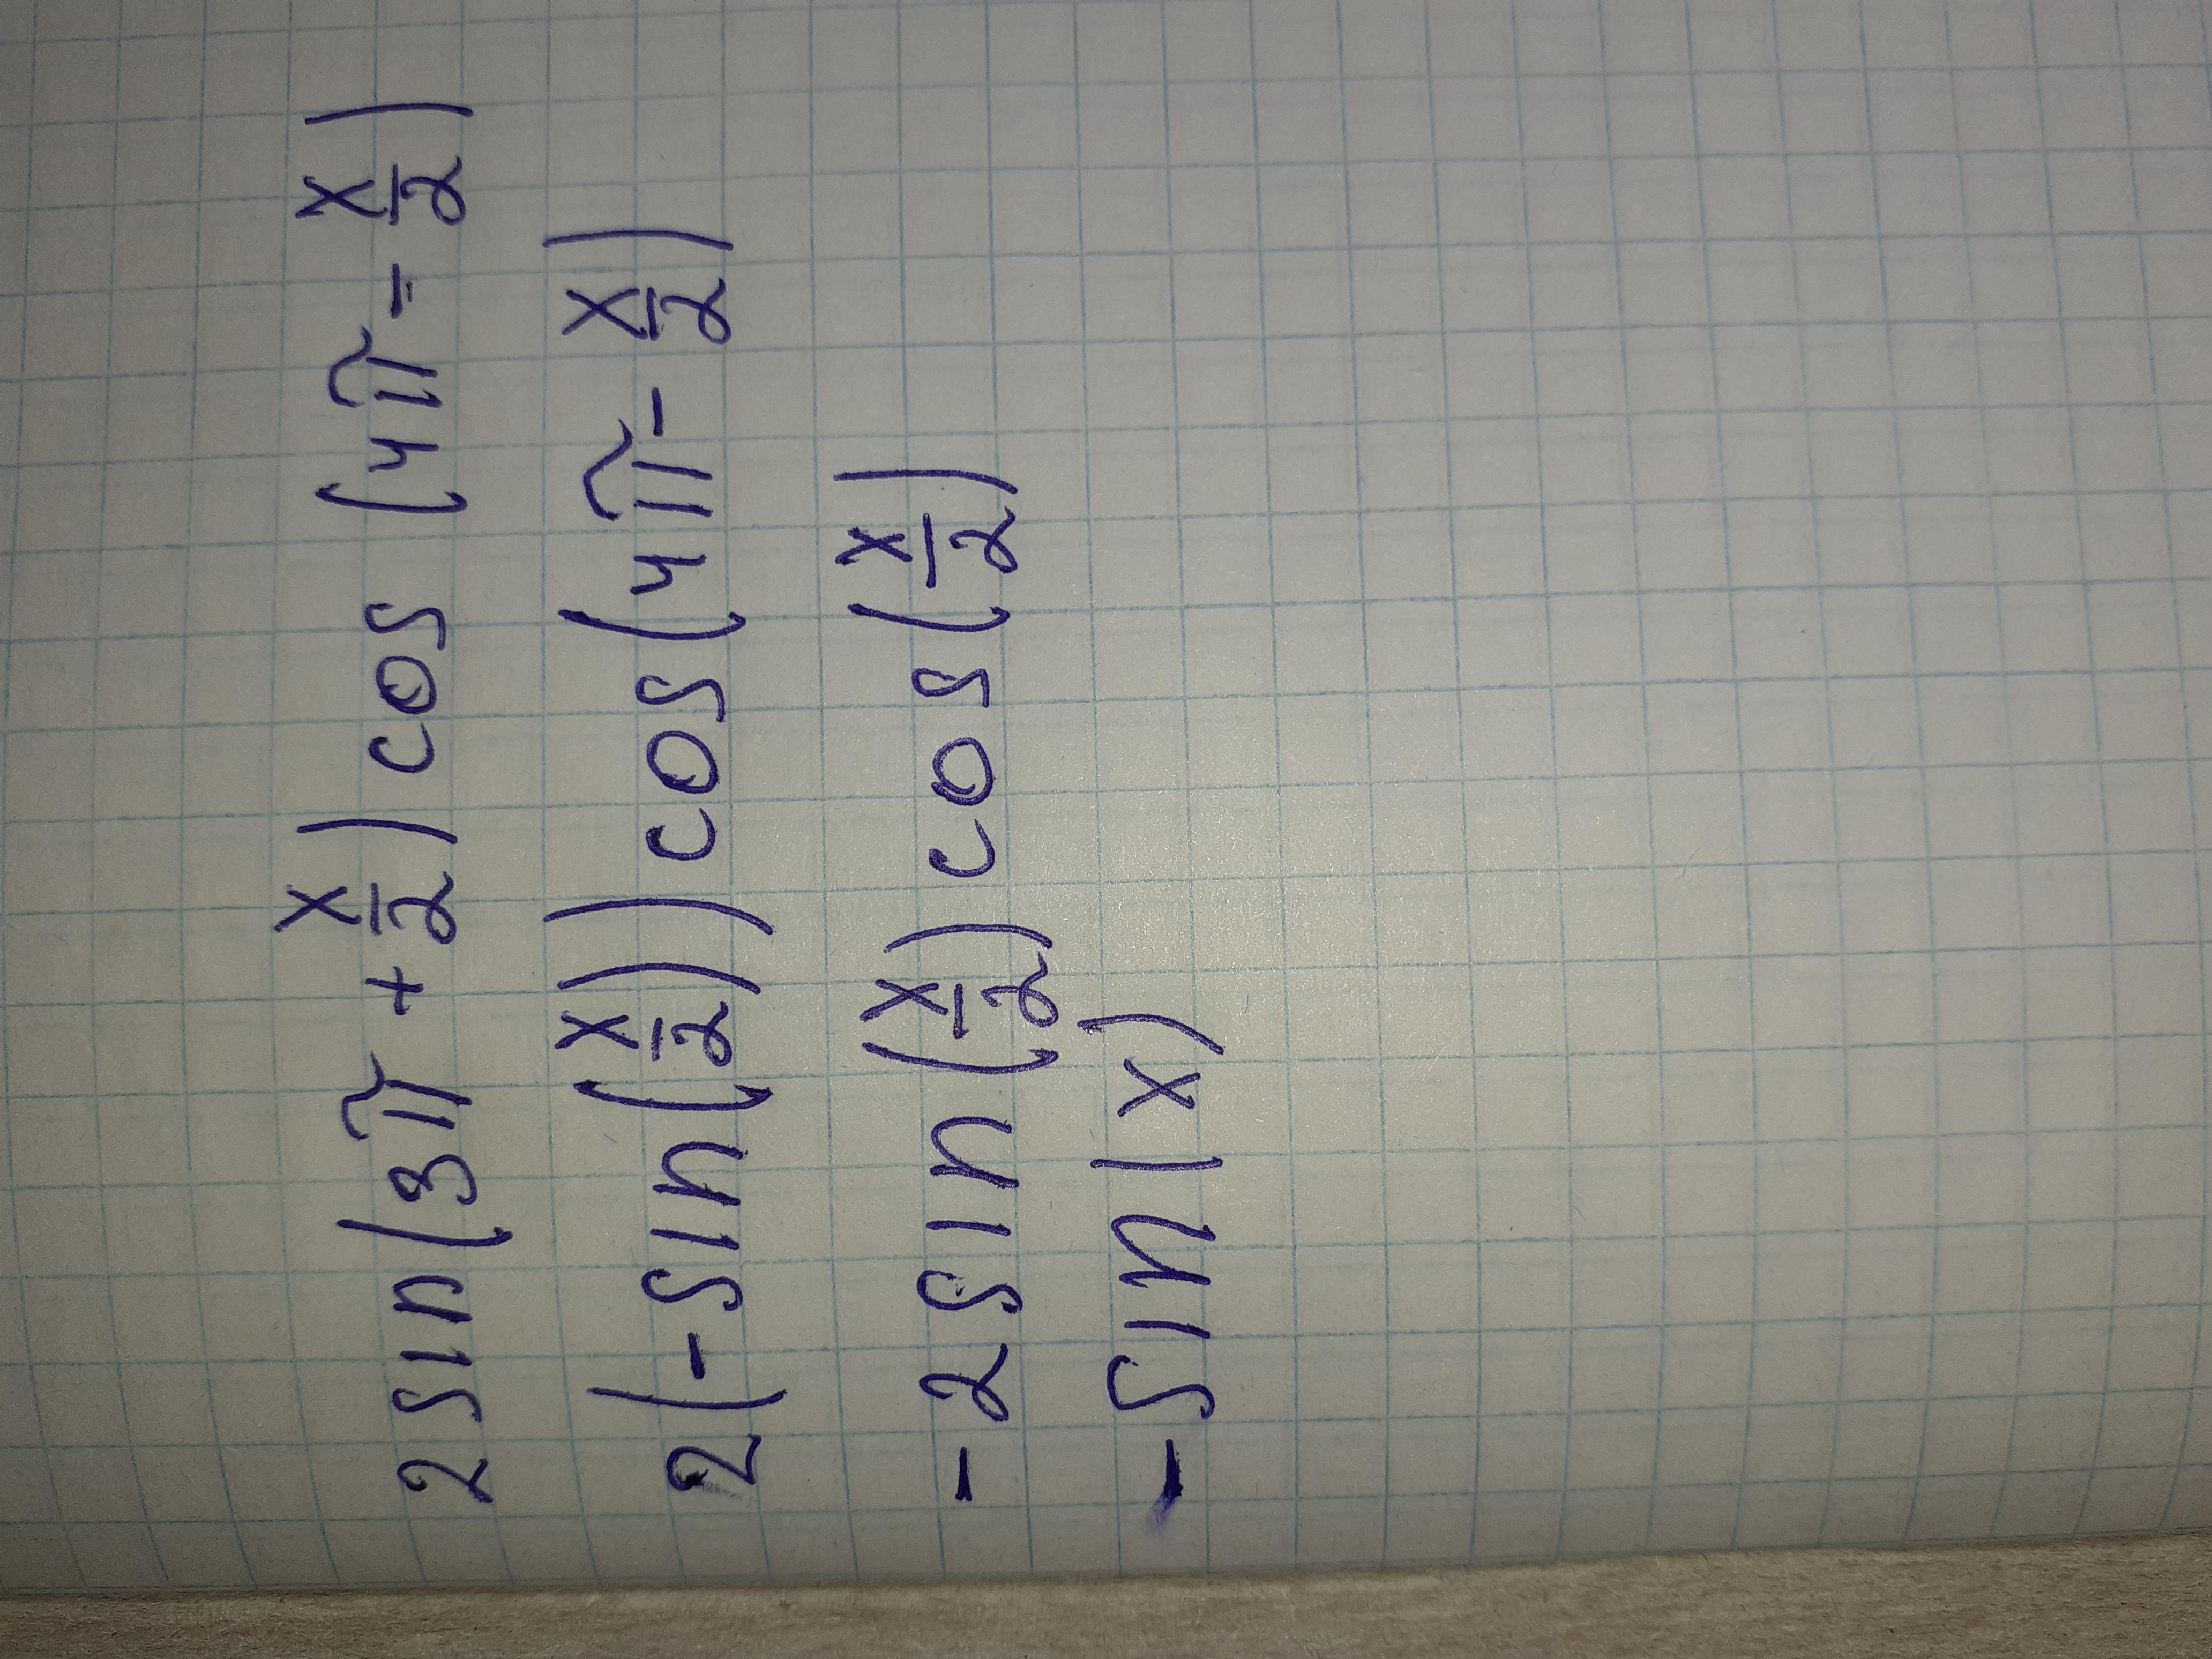 2 sin(3π + x/2) cos (4π - x/2)
2(-sin(x/2)) cos(4π - x/2)
-2 sin(x/2) cos(x/2)
- sin(x)